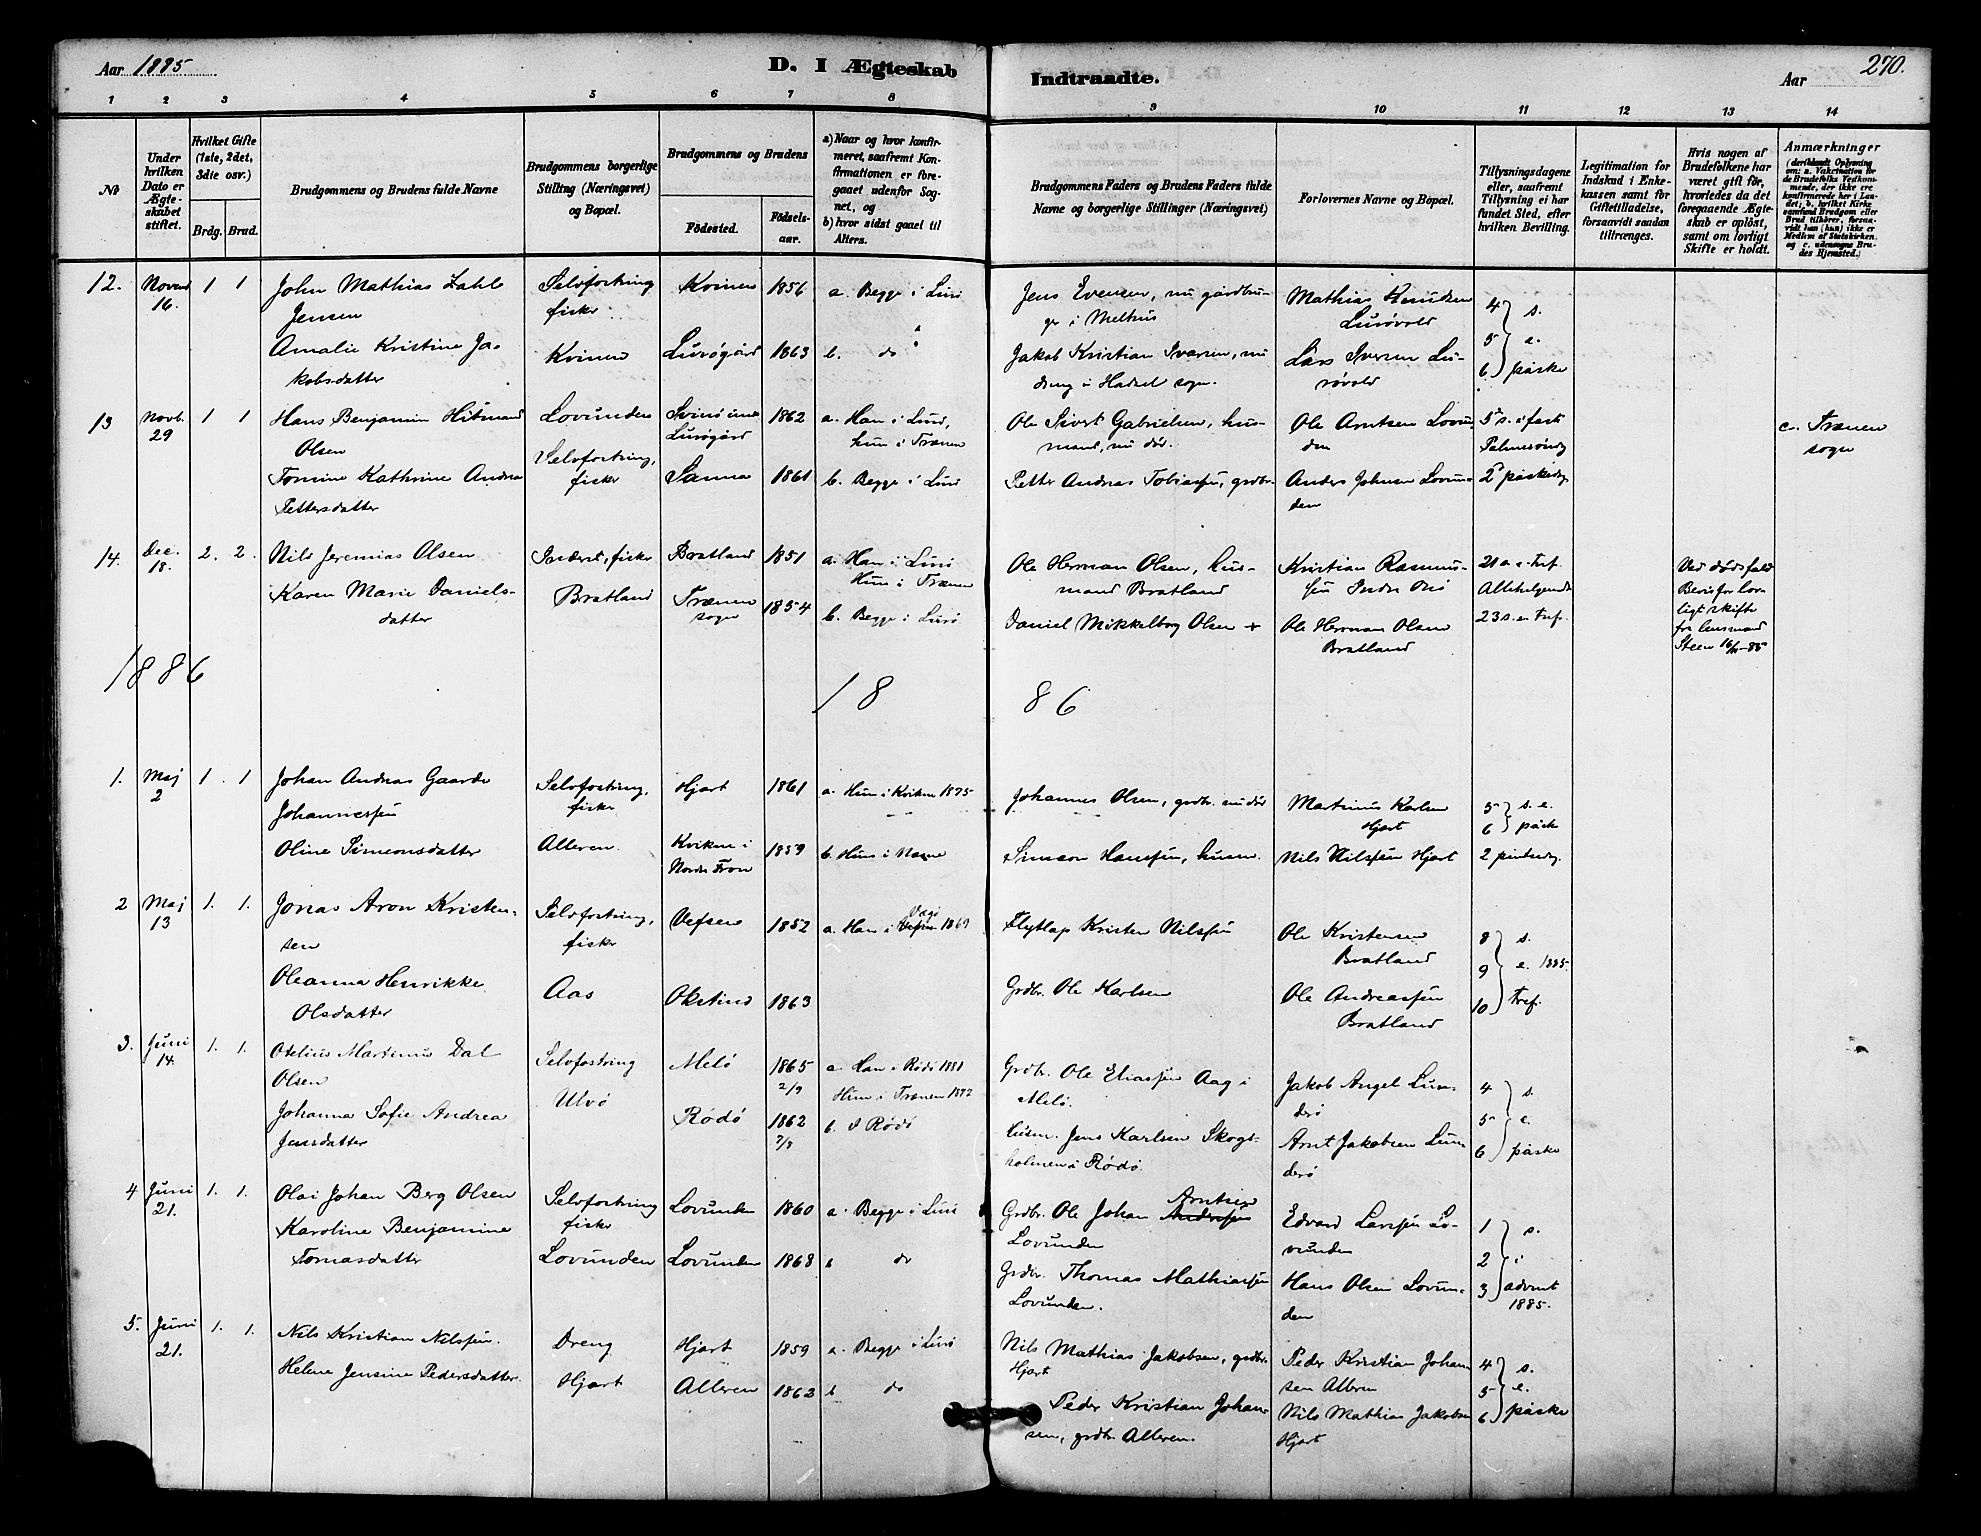 Aar 1885
D. I Ægteskab
Indtraadte.
Aar
270.
1 2 3 4 5 6 7 8 9 10 11 12 13 14
No
Under hvilken Dato er Ægteskabet stiftet.
Hvilket Gifte (1ste, 2det, 3die osv.)
Brdg. Brud.
Brudgommens og Brudens fulde Navne
Brudgommens borgerlige Stilling (Næringsvei) og Bopæl.
Brudgommens og Brudens
Födested.
Födselsaar.
a) Naar og hvor konfirmeret, saafremt Konfirmationen er foregaaet udenfor Sognet, og
b) hvor sidst gaaet til Alters.
Brudgommens Faders og Brudens Faders fulde Navne og borgerlige Stillinger (Næringsvei)
Forlovernes Navne og Bopæl.
Tillysningsdagene eller, saafremt Tillysning ei har fundet Sted, efter hvilken Bevilling.
Legitimation for Indskud i Enkekassen samt for Giftetilladelse, forsaavidt saadan tiltrænges.
Hvis nogen af Brudefolkene har været gift för, hvorledes da det foregaaende Ægteskab er oplöst, samt om lovligt Skifte er holdt.
Anmærkninger
12. Novemb 16. 1 1
John Mathias Zahl
Jensen
Amalie Kristine Ja-
kobsdatter
Selvforstring
fisker
Kvinen
Kvinen 1856
Lurøgård 1863
a. Begge i Lurö
b. do
Jens Evensen, nu gårdbru-
ger i Melhus
Jakob Kristian Ivarsen, nu
i Hadsel sogn.
Mathias Knudsen
Lurøvold
Lars Iversen Lu-
røvold
4 s.
5 e.
6 påske
13 Novb. 29 1 1
Hans Benjamin Hitmand
Olsen
Tomine Kathrine Andrea
Pettersdatter
Lovunden
Selvforstring,
fisker
Lurøgård 1862
Sanna 1861
a. Han i Lurö,
hun i Trænen
b. Begge i Lurö
Ole Sivert Gabrielsen, hus-
mand, nu död.
Petter Andreas Tobiassen, grdbr.
Ole Arntsen Lovun-
den
Anders Johnsen Lovun-
den
5 s. i fast
Palmesöndg
2 påskedg
c. Trænen
sogn
14. Dec. 18. 2. 2.
Nils Jeremias Olsen
Karen Marie Daniels-
datter
Inderst, fisker
Bratland
Bratland 1851
Trænen
sogn 1854
a. Han i Lurö
Hun i Trænen
b. Begge i Lurö
Ole Herman Olsen, hus-
mand Bratland
Daniel Mikkelborg Olsen +
Kristian Rasmus-
sen Indre
Ole Herman Olsen
Bratland
21 s. e. tref.
Allehelgensdg
23 s. e. tref.
Ved dödsfald
Bevis for lov-
ligt skifte
fra lensmand
Steen 16/11-85
1886
18 86
1. Maj 2 1. 1
Johan Andreas Gaarde
Johannessen
Oline Simeonsdatter
Selvforstring,
fisker
Alleren.
Hjart 1861
Kvikne i
Nordre Fron 1859
a. Hun i Kvikne 1875
b. Hun i
Johannes Olsen, grdbr. nu död
Simeon Hanssen, husm.
Martinus Karlsen
Hjart
Nils Nilssen Hjart
5 s. e.
6 påske
2 pintsedg.
2 Maj 13 1. 1.
Jonas Aron Kristen-
sen
Oleanna Henrikke
Olsdatter
Selvforstring,
fisker
Aas
Vefsen 1852
Okstind 1863
a. Han i 1869
Flytlap Kristen Nilssen
Grdbr. Ole Karlsen
Ole Kristensen
Bratland
Ole Andreassen
Bratland
8 s.
9 e. 1885.
10 tref.
3. Juni 14. 1. 1.
Otelius Martinus Dal
Olsen
Johanna Sofie Andrea
Jensdatter
Selvforstring
Ulvö
Melö 1865
2/9
Rödö 1862
7/8
a. Han i Rödö 1881
Hun i Trænen 1872
b. I Rödö
Grdbr. Ole Eliassen Aag i
Melö.
Husm. Jens Karlsen Skogs-
holmen i Rödö.
Jakob Angel Lun-
derö
Arnt Jakobsen Lun-
derö
4 s.
5 e.
6 påske
4 Juni 21. 1. 1.
Olai Johan Berg Olsen
Karoline Benjamine
Tomasdatter
Selvforstring
fisker
Lovunden
Lovunden 1860
Lovunden 1868
a. Begge i Lurö
b do
Grdbr. Ole Johan Arntsen
Lovunden
Grdbr. Thomas Mathiassen
Lovunden.
Edvard Larssen Lo-
vunden
Hans Olsen Lovun-
den
1 s.
2 i
3 advent
1885.
5. Juni 21. 1. 1.
Nils Kristian Nilssen.
Helene Jensine Pedersdatter
Dreng
Hjart
Hjart 1859
Alleren 1862
a. Begge i Lurö
b do
Nils Mathias Jakobsen, grdbr.
Hjart
Peder Kristian Johan-
sen, grdbr. Alleren.
Peder Kristian Johan
sen Alleren
Nils Mathias Jakobsen
Hjart
4 s.
5 e.
6 påske